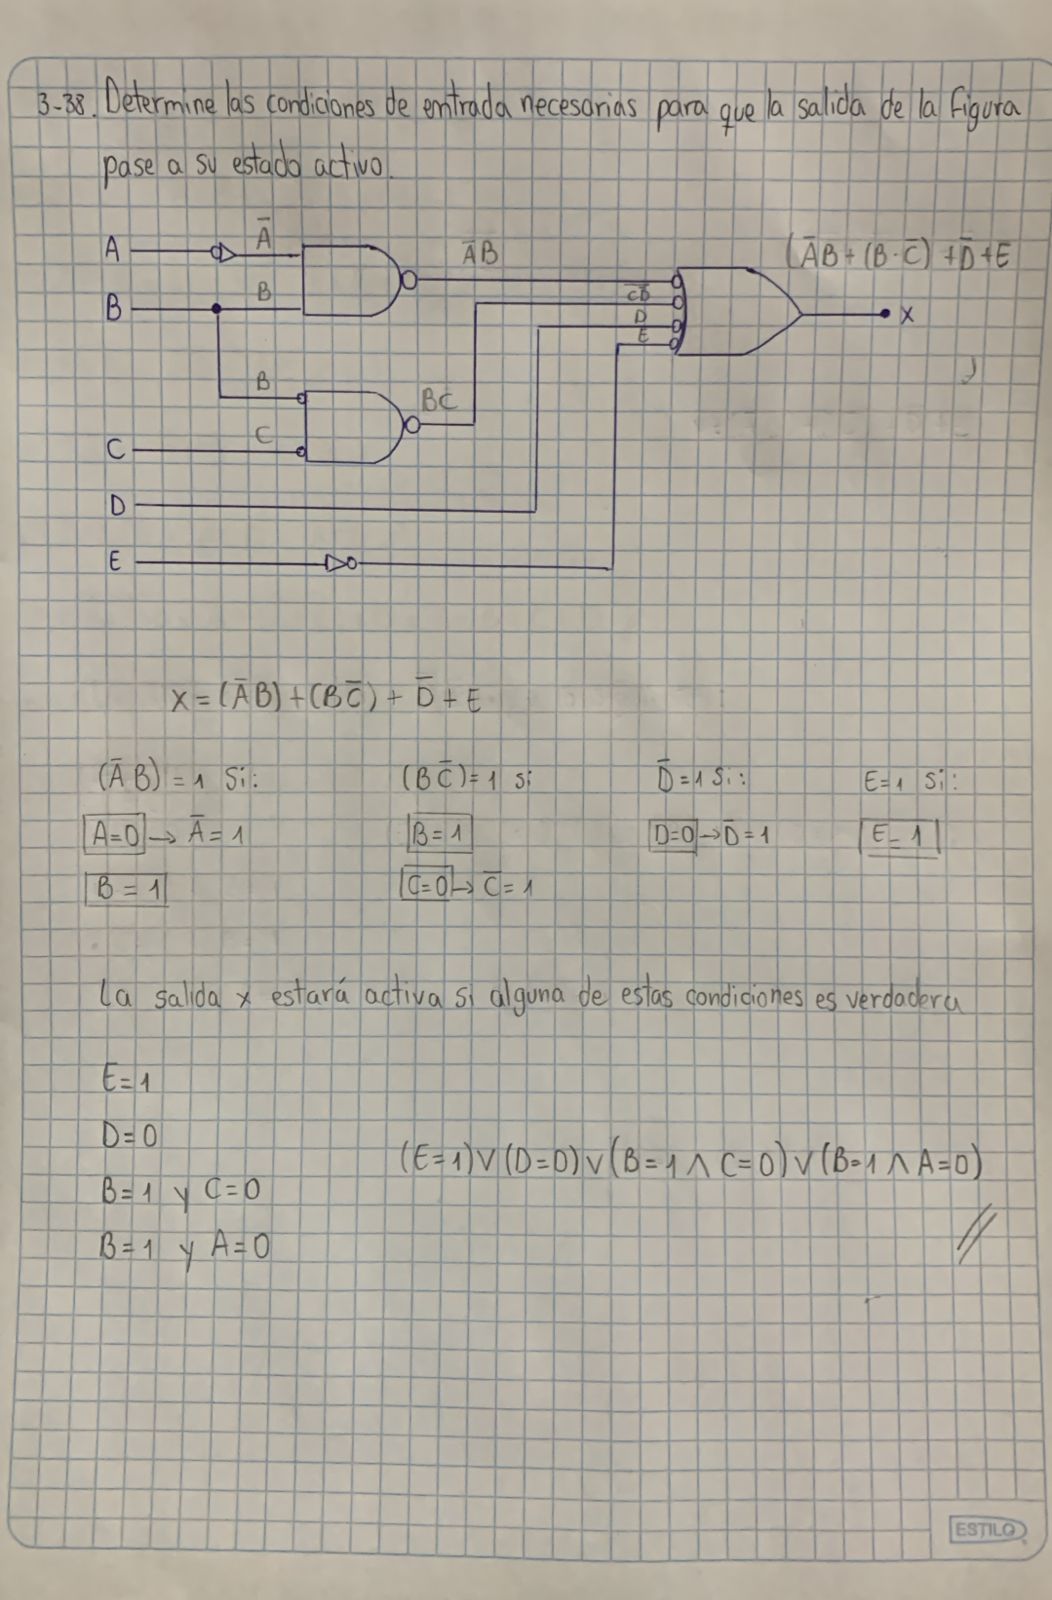 3-38. Determine las condiciones de entrada necesarias para que la salida de la figura
pase a su estado activo.
A
Ā
B
B
ĀB
(ĀB + (B·C̅) + D̅ + E
C̅B̅
D
E
X
B
C
BC̅
C
D
E
X = (ĀB) + (BC̅) + D̅ + E
(ĀB) = 1 Si: (BC̅) = 1 si D̅ = 1 Si: E = 1 Si:
A=0 → Ā = 1 B = 1 D=0 → D̅ = 1 E = 1
B = 1 C=0 → C̅ = 1
La salida x estará activa si alguna de estas condiciones es verdadera
E = 1
D = 0
(E=1) ∨ (D=0) ∨ (B=1 ∧ C=0) ∨ (B=1 ∧ A=0)
B = 1 y C = 0
B = 1 y A = 0
ESTILO